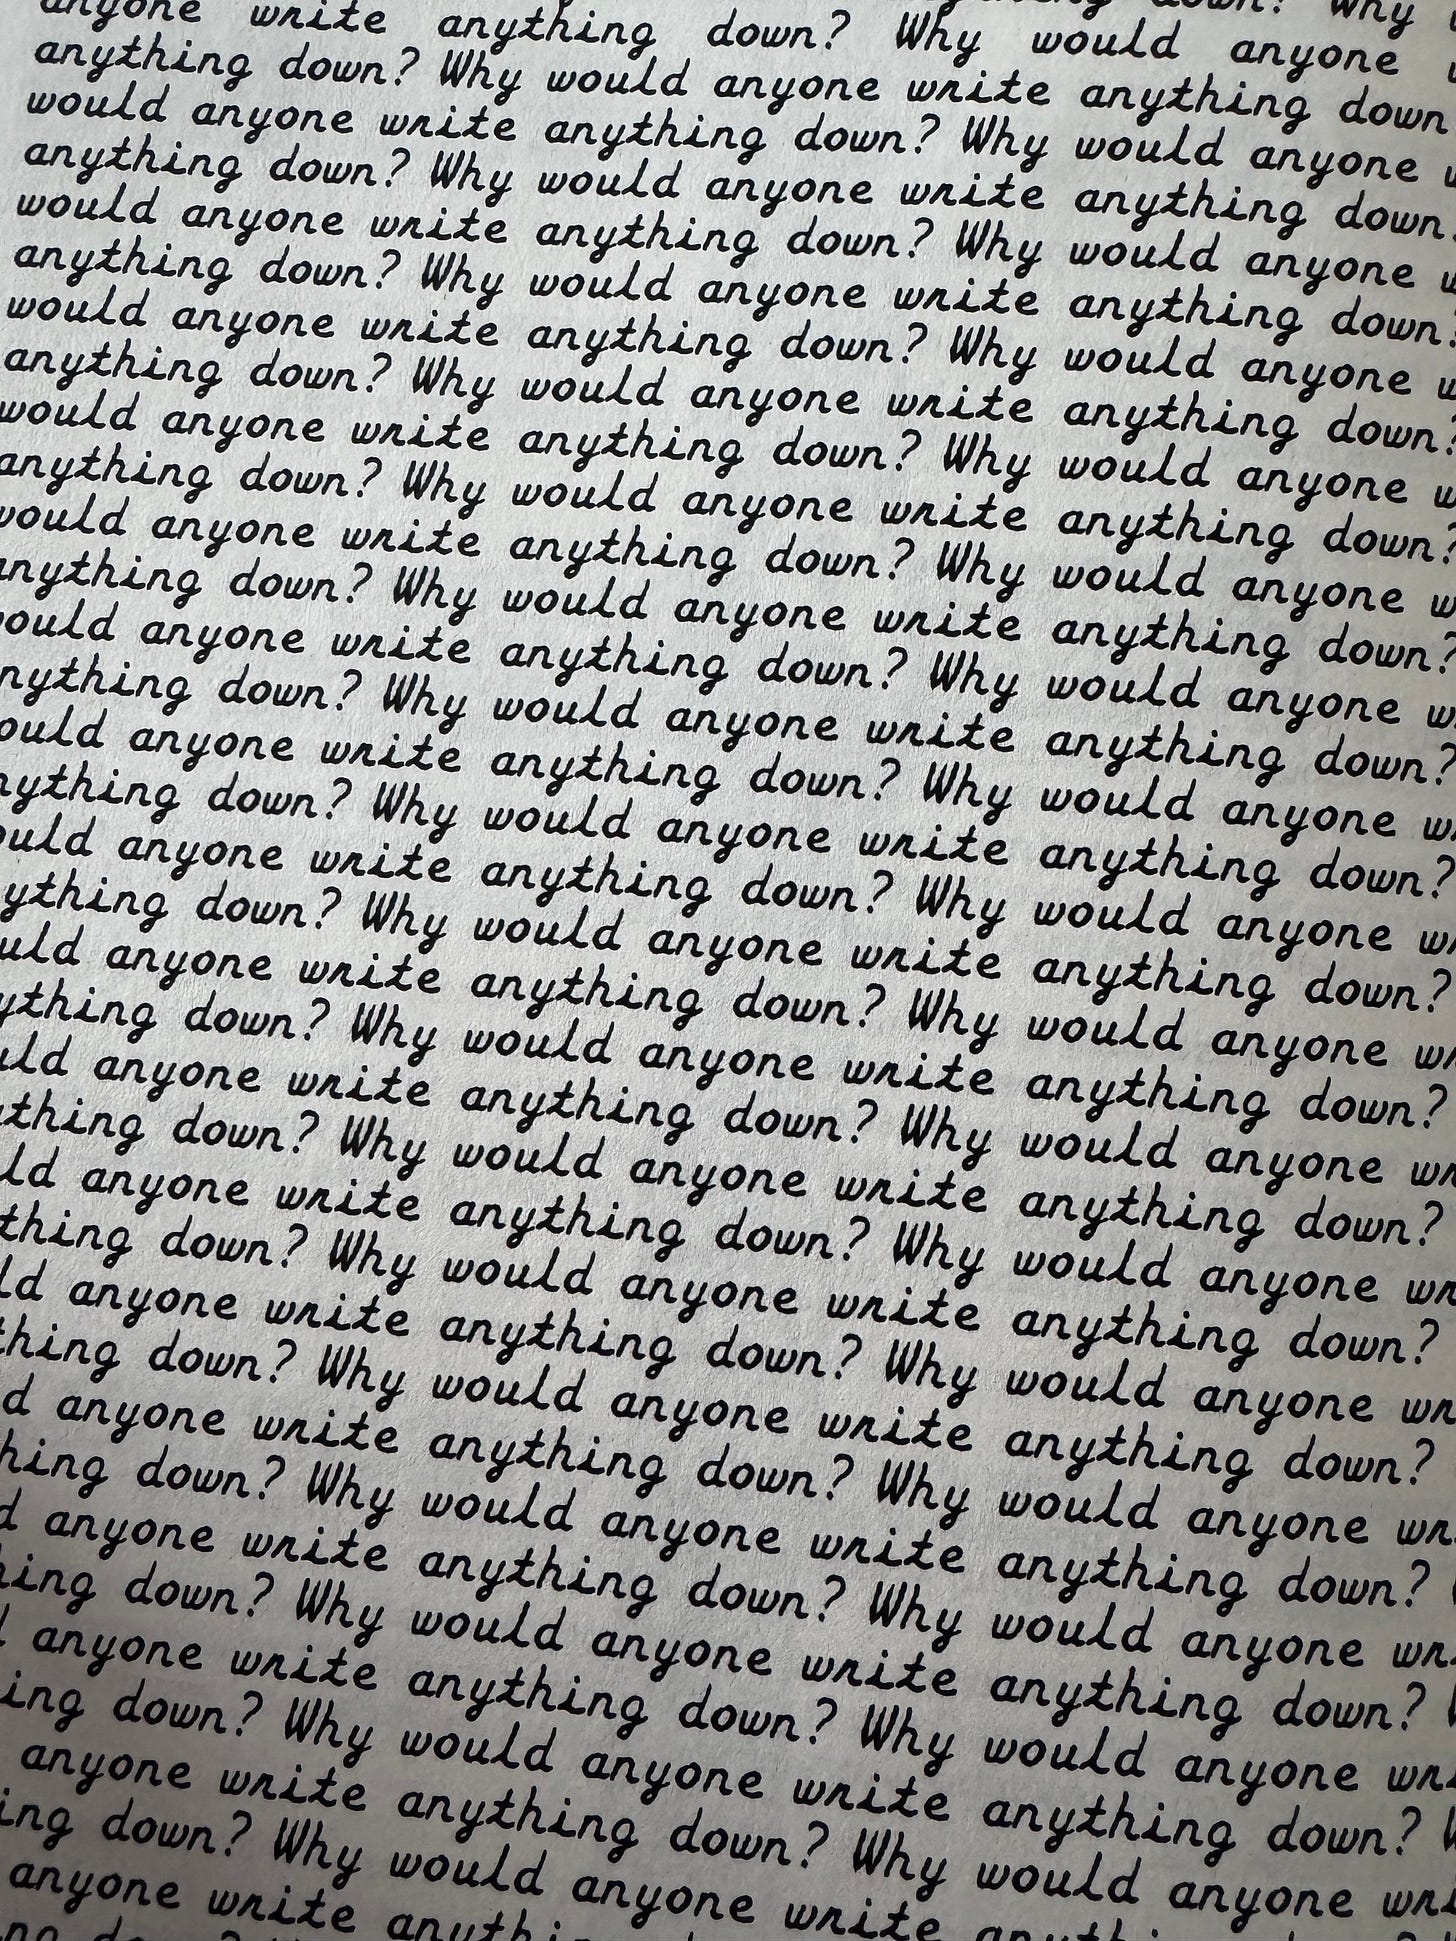 down? Why
anyone write anything down? Why would anyone
anything down? Why would anyone write anything down
would anyone write anything down? Why would anyone
anything down? Why would anyone write anything down
would anyone write anything down? Why would anyone
anything down? Why would anyone write anything down?
would anyone write anything down? Why would anyone
anything down? Why would anyone write anything down?
would anyone write anything down? Why would anyone
anything down? Why would anyone write anything down?
would anyone write anything down? Why would anyone
anything down? Why would anyone write anything down?
anyone write anything down? Why would anyone
down? Why would anyone write anything down?
anyone write anything down? Why would anyone
down? Why would anyone write anything down?
anyone write anything down? Why would anyone
down? Why would anyone write anything down?
anyone write anything down? Why would anyone
down? Why would anyone write anything down?
anyone write anything down? Why would anyone
down? Why would anyone write anything down?
anyone write anything down? Why would anyone
down? Why would anyone write anything down?
anyone write anything down? Why would anyone
down? Why would anyone write anything down?
anyone write anything down? Why would anyone
down? Why would anyone write anything down?
anyone write anything down? Why would anyone
down? Why would anyone write anything down?
anyone write anything down? Why would anyone
down? Why would anyone write anything down?
anyone write anything down? Why would anyone
down? Why would anyone write
anyone write